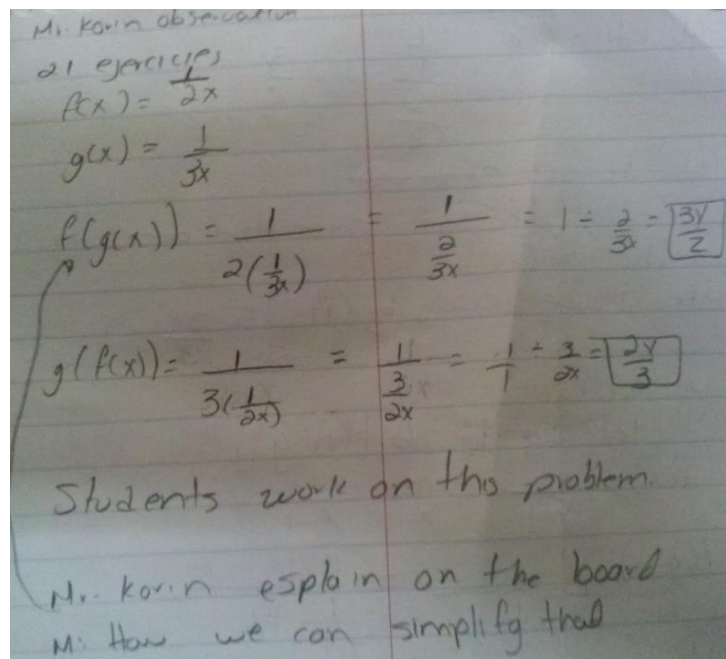 Mr. Korin observation
21 ejercicies
f(x) = 1/2x
g(x) = 1/3x
f(g(x)) = 1/2(1/3x) = 1/(2/3x) = 1 ÷ 2/3x = 3x/2
g(f(x)) = 1/3(1/2x) = 1/(3/2x) = 1/1 ÷ 3/2x = 2x/3
Students work on this problem.
Mr. Korin esplain on the board
M: How we can simplify that